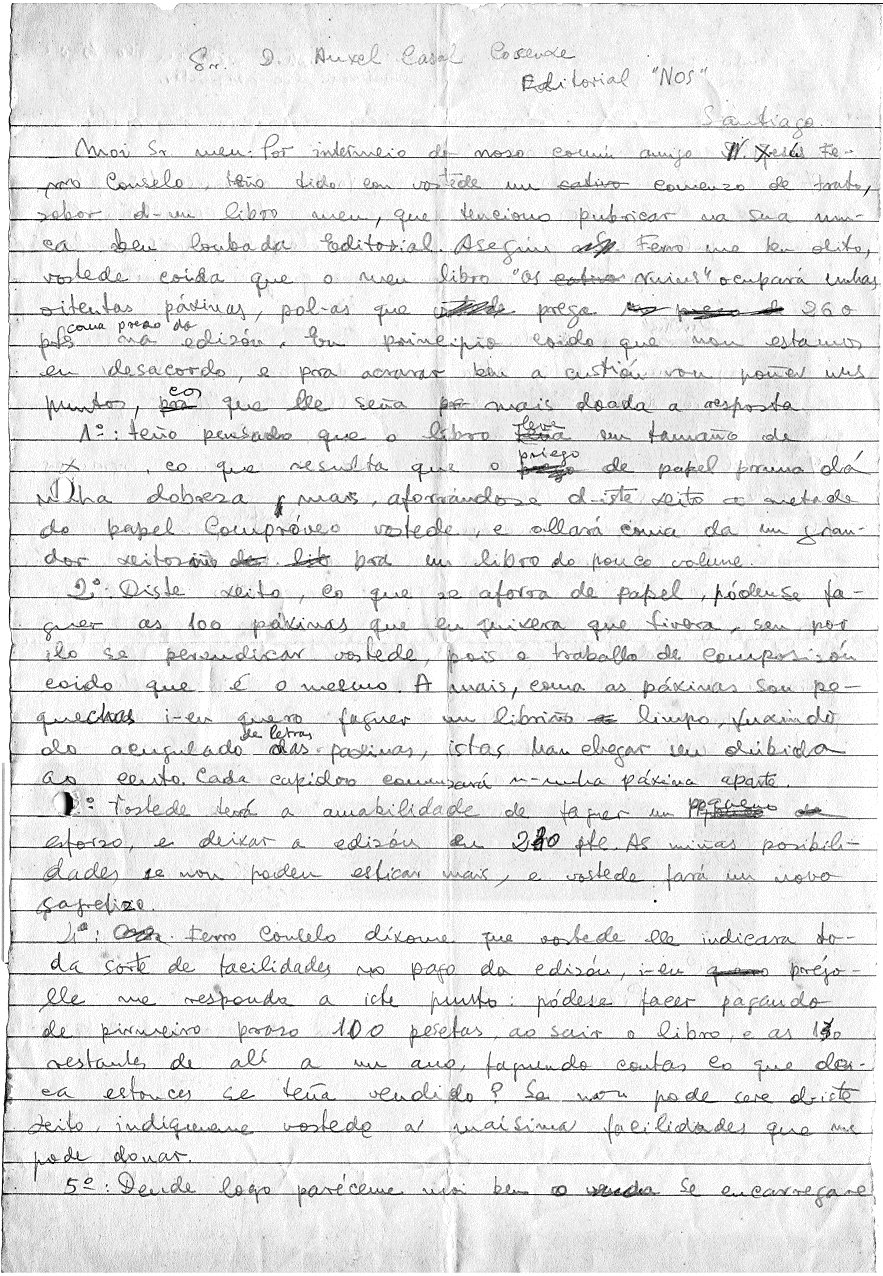 Sr. D. Anxel Casal Cosende
Editorial "NOS"
Santiago.
Moi Sr meu: Por intermeio do noso comũn amigo Xesús Fe-
rro Couselo, teño tido con vostede un cativo comenzo de trato,
sobor d-un libro meu, que tenciono pubricar na sua nun-
ca ben loubada Editorial. Asegũn Ferro me ten dito,
vostede coida que o meu libro "os ruins" ocupará unhas
oitentas páxinas, pol-as que prega 260
coma prezo do
pts na edizón. En principio coido que non estamos
en desacordo, e pra acrarar ben a custión vou poñer uns
puntos, cos que lle seña mais doada a resposta.
1º: teño pensado que o libro leve un tamaño de
x , co que resulta que o priego de papel pruma dá
unha dobreza mais, aforrándose d-iste xeito a metade
do papel Compróveo vostede, e ollará coma da un gran-
dor xeitosiño pra un libro do pouco volume.
2º: Diste xeito, co que se aforra de papel, pódense fa-
guer as 100 páxinas que eu quixera que tivera, sen por
ilo se perxudicar vostede, pois o traballo de composizón
coido que é o mesmo. A mais, coma as páxinas son pe-
quechas i-eu quero faguer un libriño limpo, fuxindo
de letras
do acugulado das páxinas, istas han chegar sen dúbida
ao cento. Cada capidoo comenzará n-unha páxina aparte.
3º: Vostede terá a amabilidade de faguer un pequeno
esforzo, e deixar a edizón en 230 pte. As miñas posibili-
dades se non poden esticar mais, e vostede fará un novo
sacrefize.
4ª: Ferro Couselo díxome que vostede lle indicara to-
da sorte de facilidades no pago da edizón, i-eu prégo-
lle me responda a iste punto: pódese facer pagando
de pirmeiro prazo 100 pesetas, ao sair o libro, e as 130
restantes de alí a un ano, faguendo contas co que den-
ca estonces se teña vendido? Se non pode sere d-iste
xeito, indíqueme vostede a maísima facilidades que me
pode donar.
5º: Dende logo paréceme moi ben se encarregare